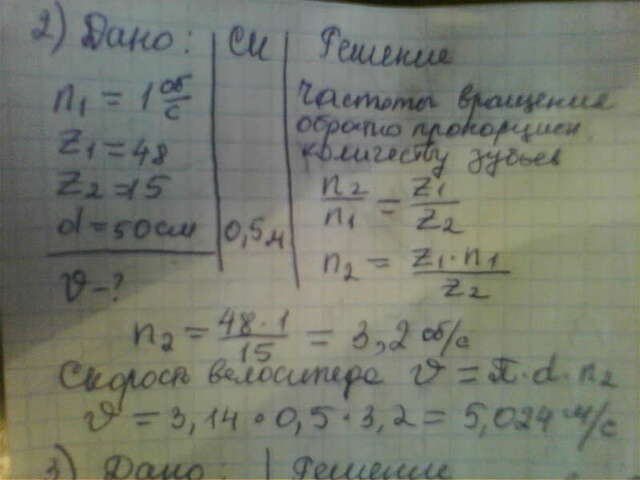 2) Дано: | СИ | Решение
n₁ = 1 об/с
Z₁ = 48
Z₂ = 15
d = 50 см | 0,5 м
v - ?
Частоты вращения
обратно пропорцион.
количеству зубьев
n₂/n₁ = Z₁/Z₂
n₂ = Z₁·n₁/Z₂
n₂ = 48·1/15 = 3,2 об/с
Скорость велосипеда v = π·d·n₂
v = 3,14·0,5·3,2 = 5,024 м/с
3) Дано: | Решение